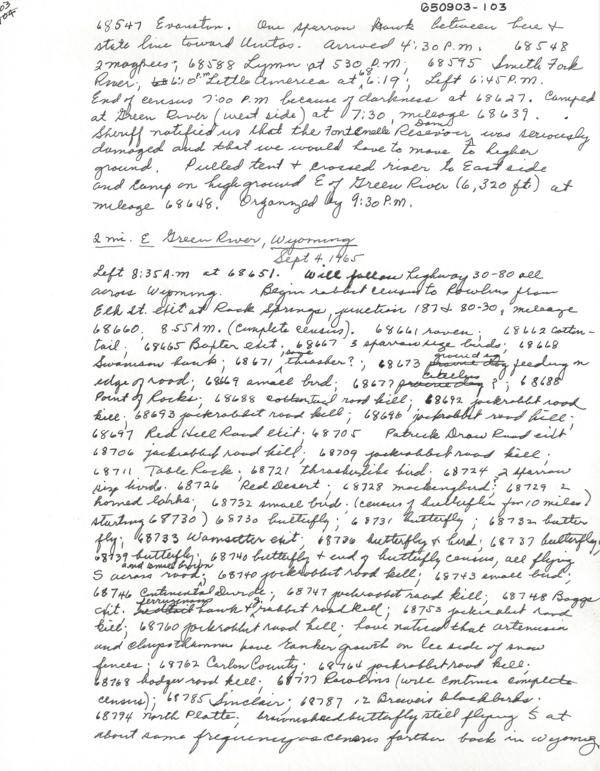 G50903-103
68547 Evanston. One sparrow hawk between here &
state line toward Uintas. Arrived 4:30 P.M. 68548
2 magpies; 68588 Lyman at 530 P.M; 68595 Smith Fork
River; 6:10 P.M Little America at 6:19; Left 6:45 P.M.
End of census 7:00 P.M because of darkness at 68627. Camped
at Green River (west side) at 7:30, mileage 68639.
Sheriff notified us that the Fontenelle Resevoir Dam was seriously
damaged and that we would have to move to higher
ground. Pulled tent & crossed river to East side
and camp on high ground E of Green River (6,320 ft) at
mileage 68648. Organized by 9:30 P.M.
2 mi. E Green River, Wyoming
Sept 4, 1965
Left 8:35 A.M at 68651. Will follow highway 30-80 all
across Wyoming. Begin rabbit census to Rawlins from
Elk St. exit at Rock Springs, junction 187 & 80-30, mileage
68660, 8 55 A.M. (complete census). 68661 raven; 68662 cotton-
tail; 68665 Baxter exit. 68667 3 sparrow size birds; 68668
Swainson hawk; 68671 sage thrasher?; 68673 prairie dog ground sq feeding on
edge of road; 68669 small bird; 68677 prairie dog Citellus ?; 68685
Point of Rocks; 68688 cottontail road kill; 68692 jackrabbit road
kill; 68693 jackrabbit road kill; 68696 jackrabbit road kill;
68697 Red Hill Road exit; 68705 Patrick Draw Road exit
68706 jackrabbit road kill; 68709 jackrabbit road kill;
68711 Table Rock. 68721 thrasherlike bird. 68724 2 sparrow
size birds. 68726 Red Desert; 68728 mockingbird? 68729 2
horned larks. 68732 small bird. (census of butterflies for 10 miles)
starting 68730) 68730 butterfly; 68731 butterfly; 68732 butter
fly; 68733 Wamsutter exit; 68736 butterfly & bird; 68737 butterfly;
68739 butterfly; 68740 butterfly & end of butterfly census, all flying
and small brown
S across road; 68740 jackrabbit road kill; 68743 small bird;
68746 Continental Divide; 68747 jackrabbit road kill; 68748 Baggs
exit. redtail ferruginous hawk & j. rabbit road kill; 68753 jackrabbit road
kill; 68760 jackrabbit road kill; have noticed that artemisia
and chrysothamnus have ranker growth on lee side of snow
fences; 68762 Carbon County; 68764 jackrabbit road kill;
68768 badger road kill; 68777 Rawlins (will continue complete
census); 68785 Sinclair; 68787 12 Brewers blackbirds.
68794 North Platte; butterfly still flying S at
about same frequency as census farther back in Wyoming